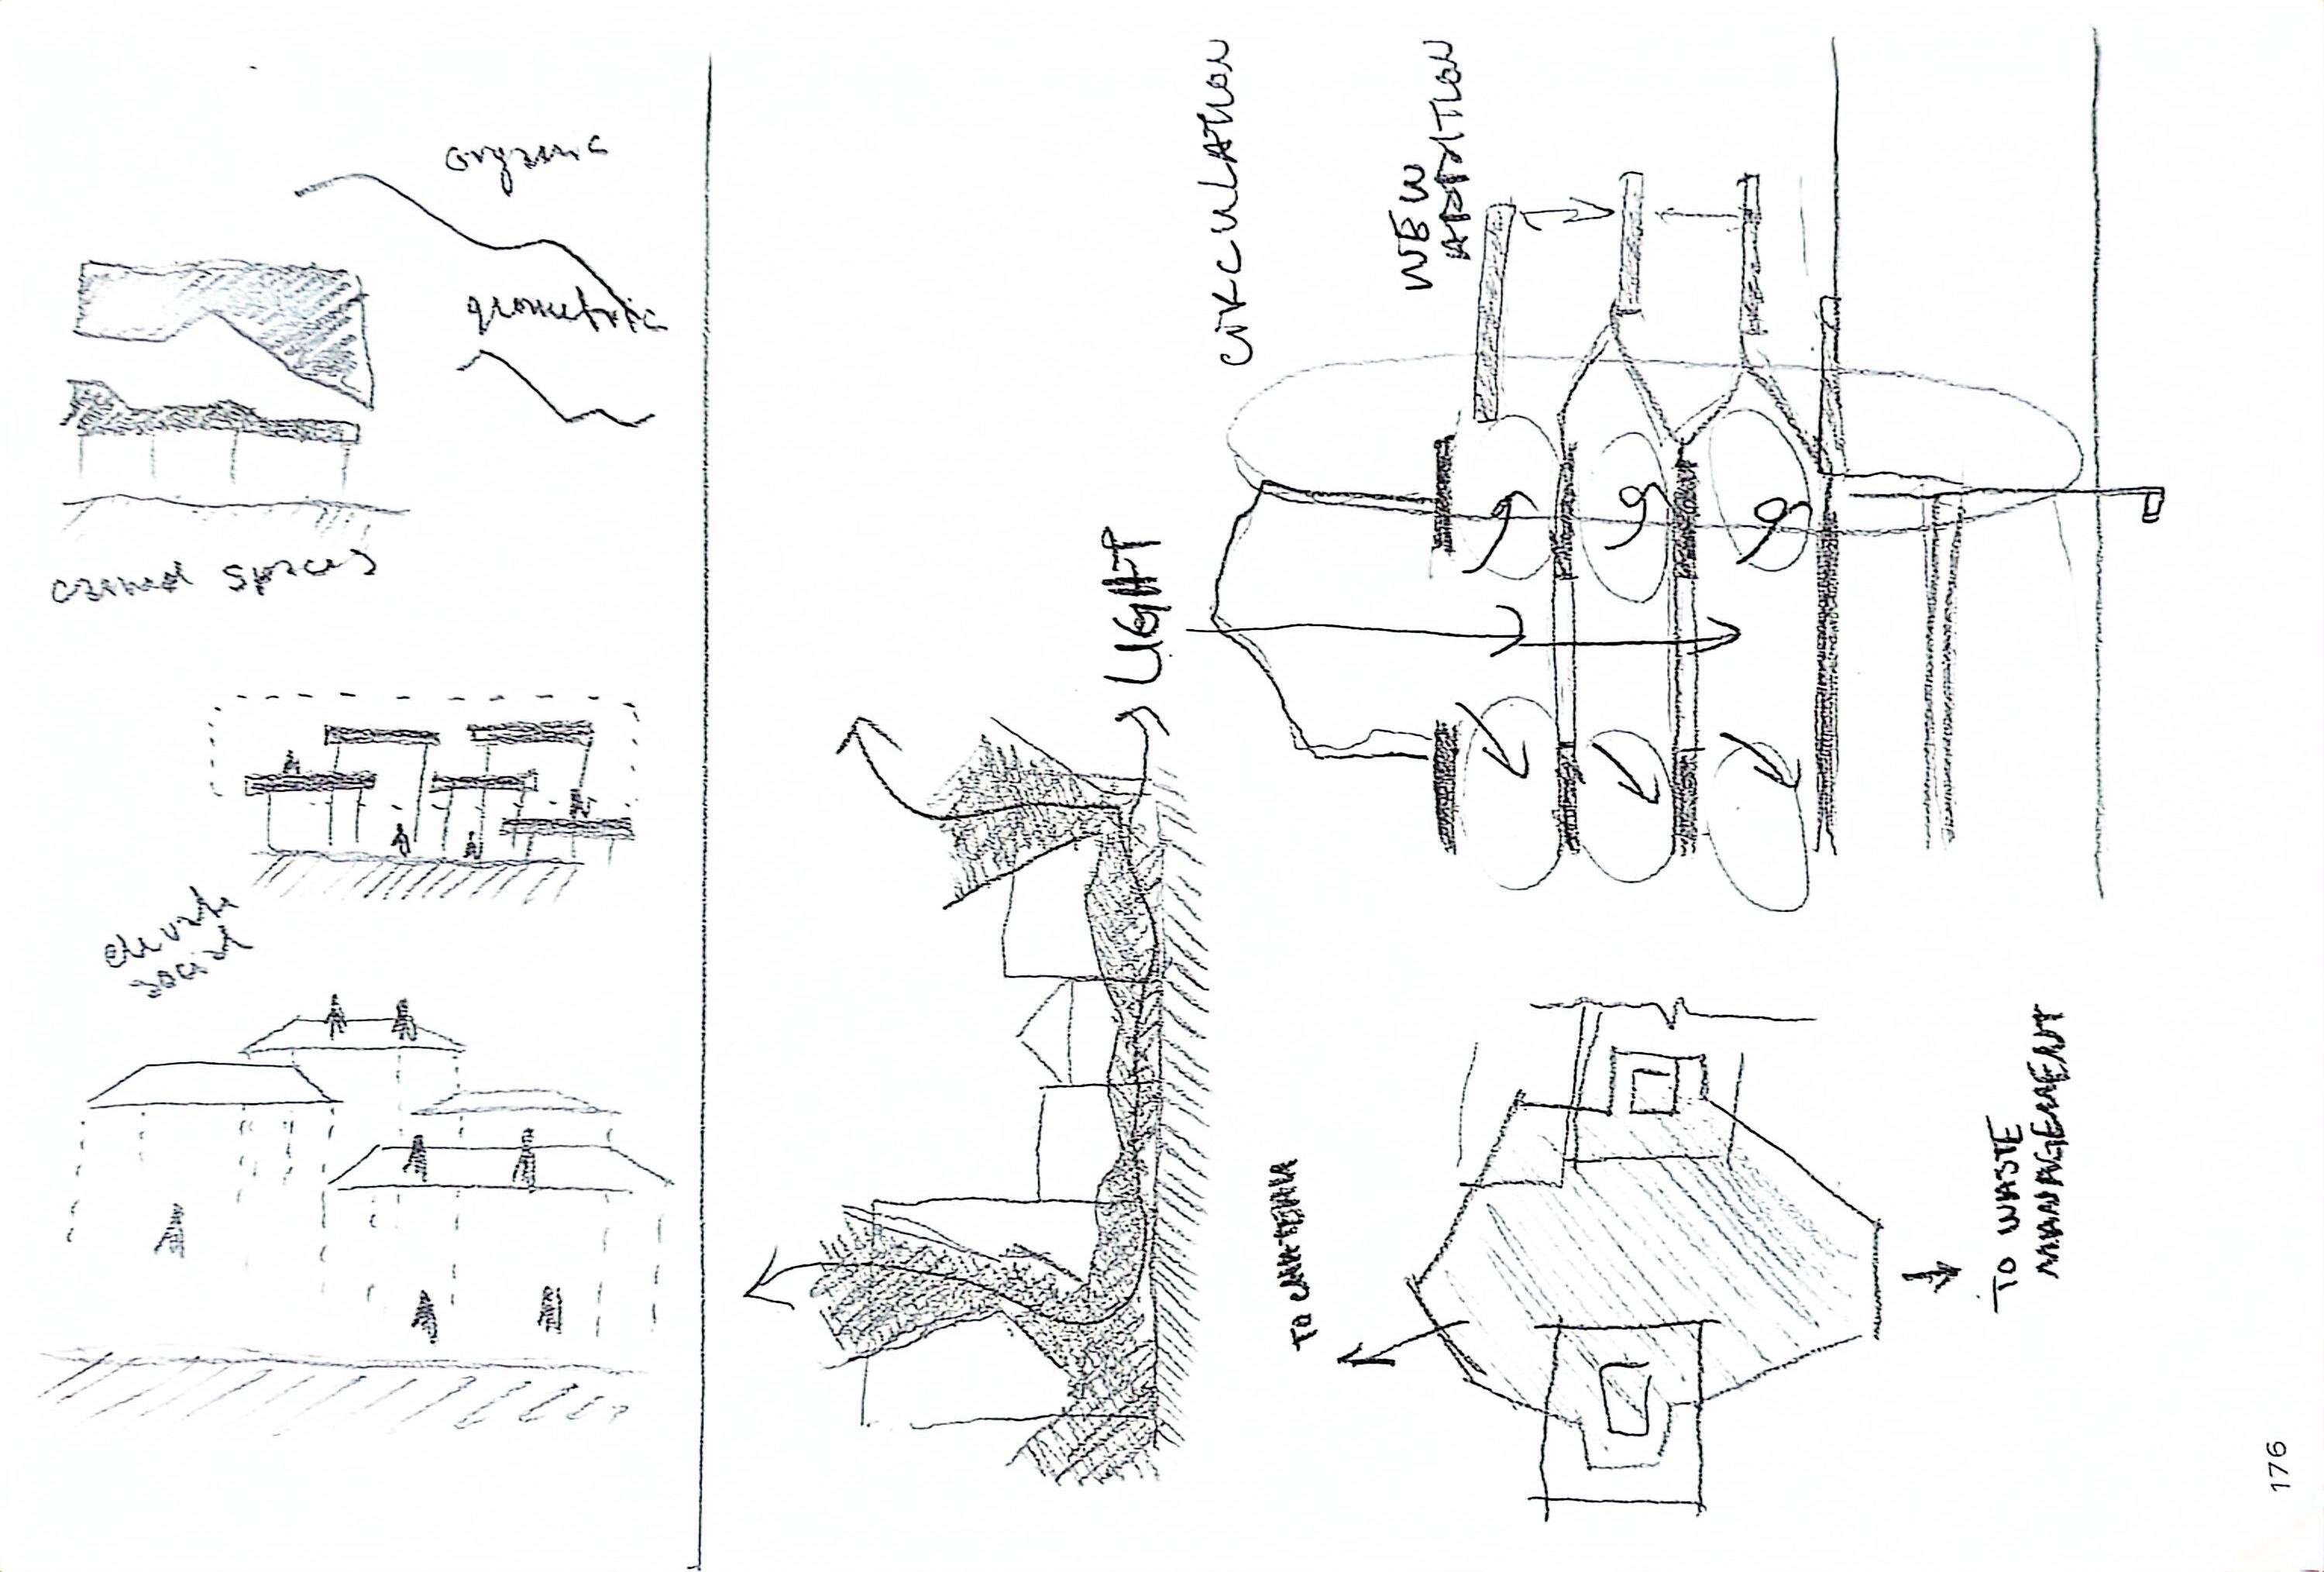 organic
geometric
carved spaces
elevate
social
LIGHT
CIRCULATION
NEW
ADDITION
TO CAFETERIA
TO WASTE
MANAGEMENT
176